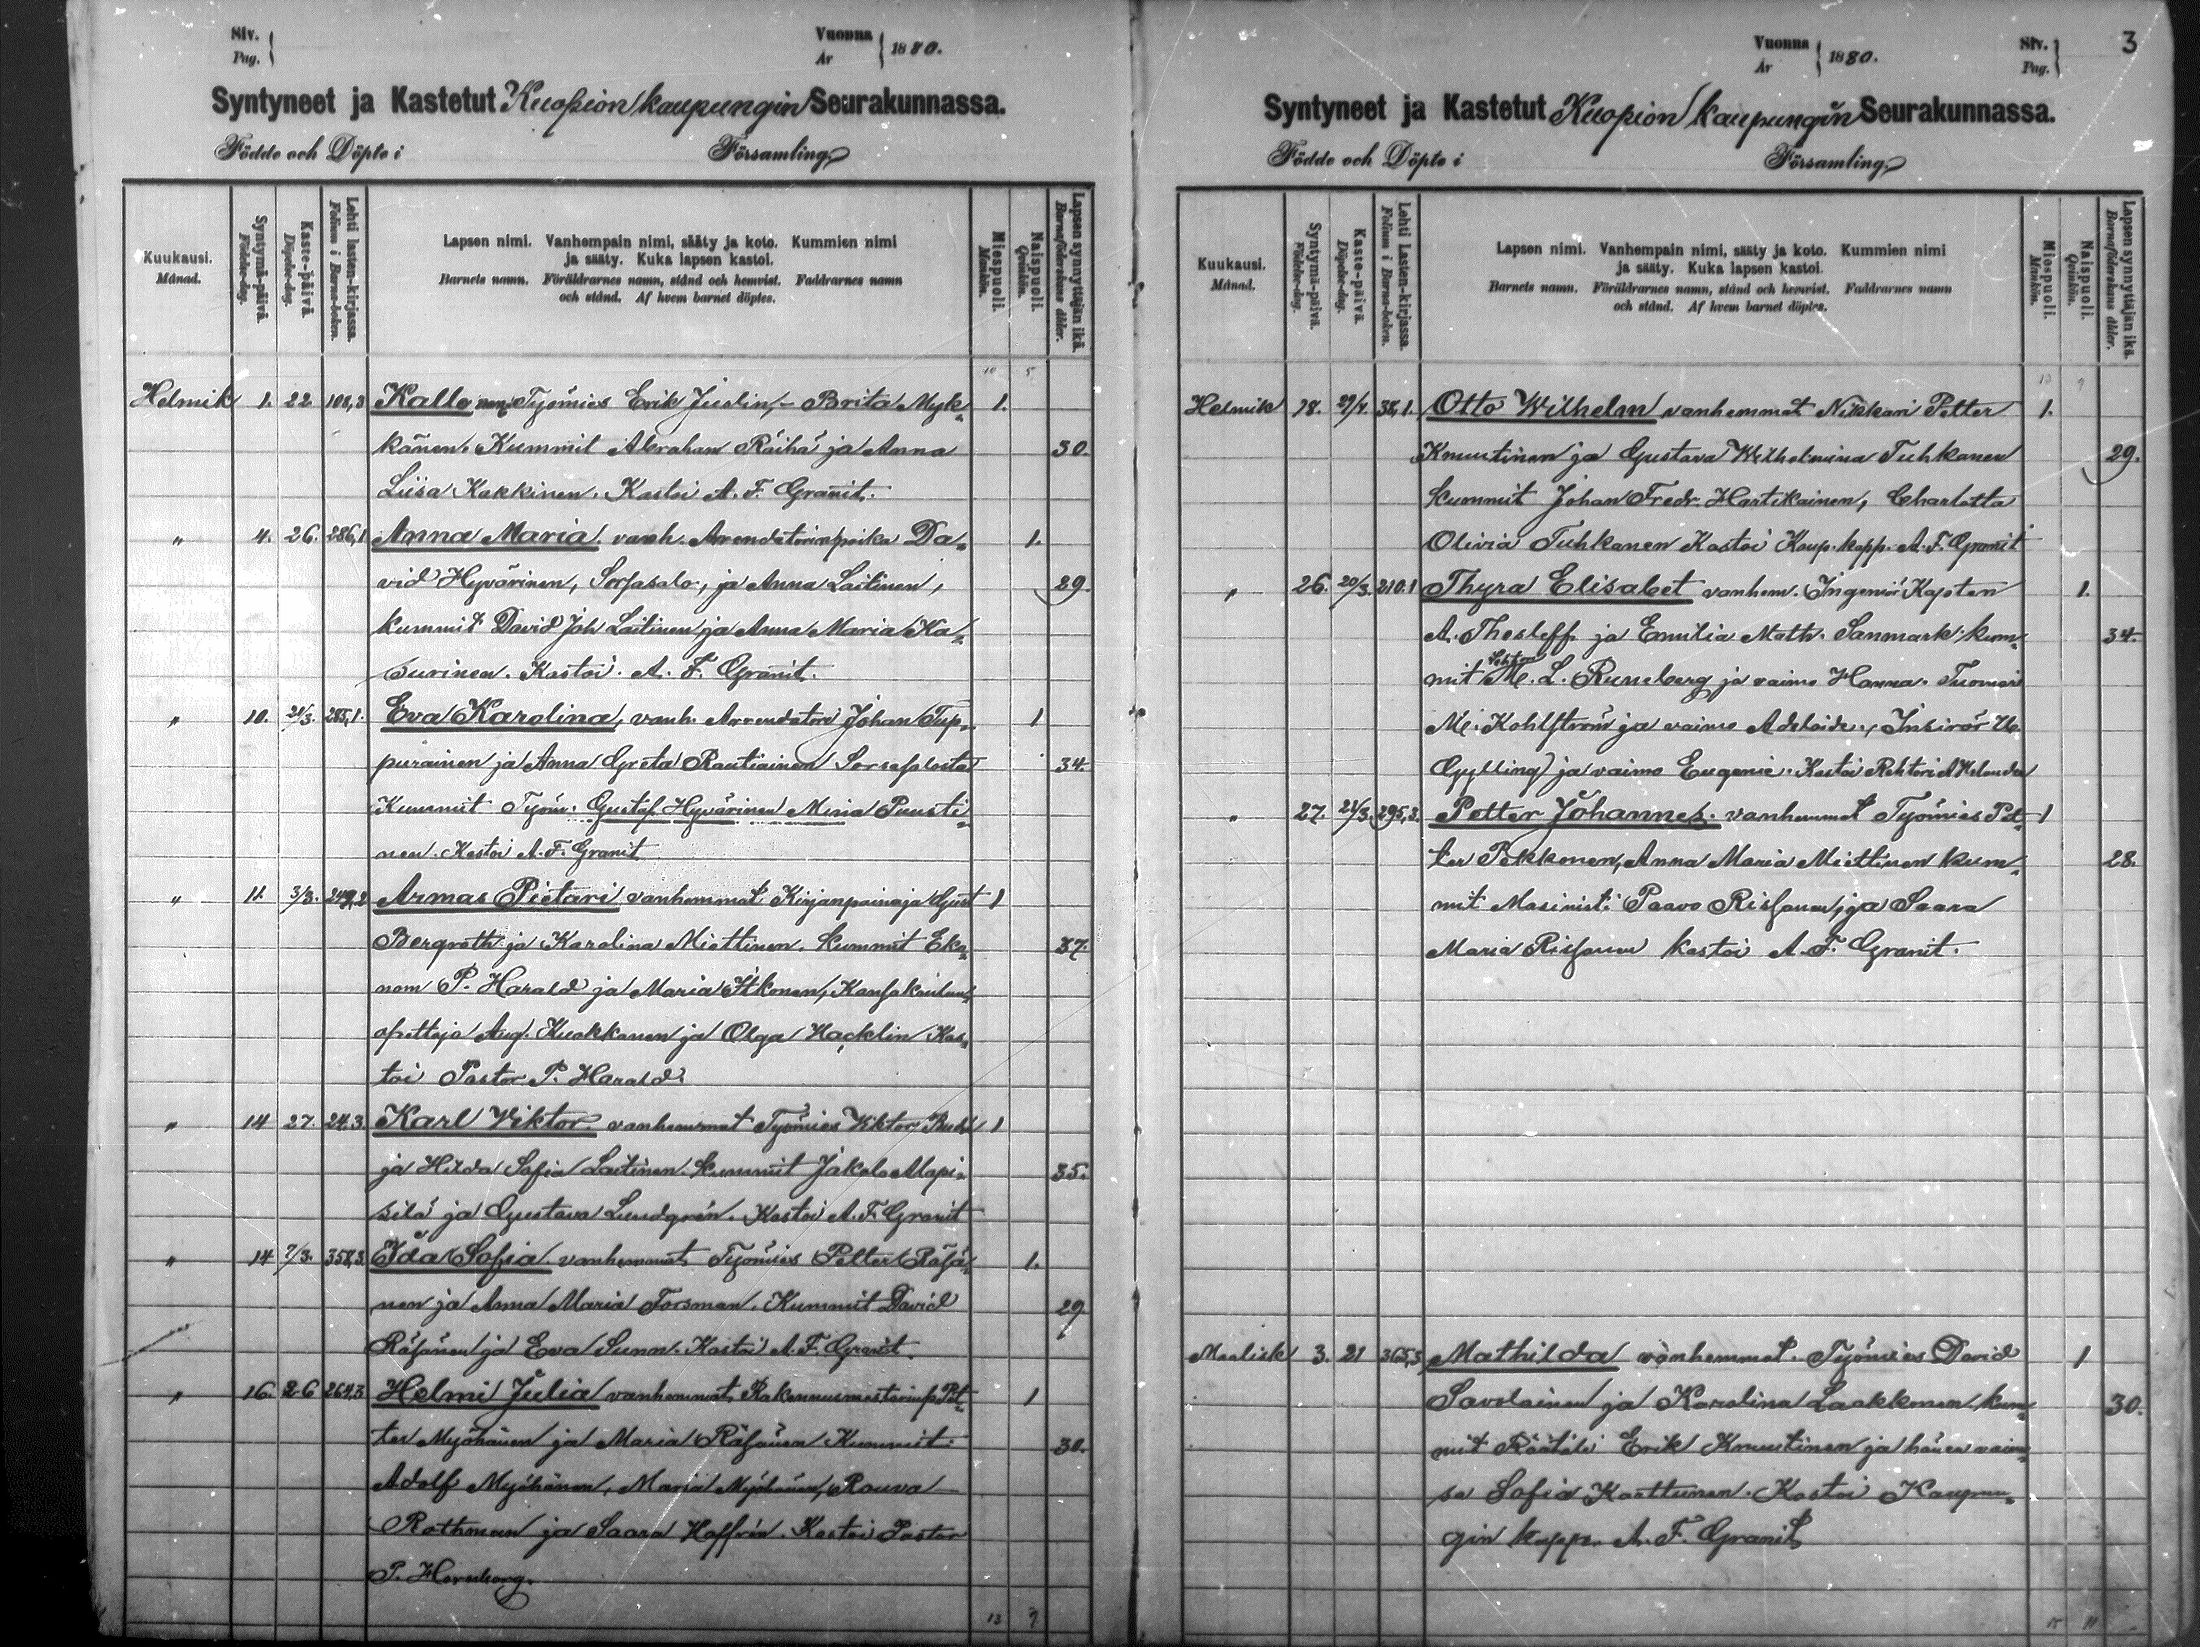 Siv.
Pag.
Vuonna
År
1880.
Syntyneet ja Kastetut Kuopion kaupungin Seurakunnassa.
Födde och Döpte i Församling
Kuukausi.
Månad.
Syntymä-päivä.
Födelse-dag.
Kaste-päivä
Döpelse-dag.
Lehti lasten-kirjassa.
Folium i Barna-boken.
Lapsen nimi. Vanhempain nimi, sääty ja koto. Kummien nimi
ja sääty. Kuka lapsen kastoi.
Barnets namn. Föräldrarnes namn, stånd och hemvist. Faddrarnes namn
och stånd. Af hvem barnet döptes.
Miespuoli.
Mankön.
Naispuoli.
Qvinkön.
Lapsen synnyttäjän ikä.
Barnaföderskans ålder.
10 5
Helmik 1. 22 Kalle Työmies Erik Juslin, Brita Myk- 1.
känen. Kummit Abraham Räihä ja Anna 30.
Liisa Kakkinen. Kastoi A. F. Granit.
" 4. 26. 286,1 Anna Maria. vanh. Arrendatorinpoika Da- 1.
vid Hyvärinen, Sorsasalo, ja Anna Laitinen, 29.
kummit David Joh Laitinen ja Anna Maria Ka-
surinen. Kastoi A. F. Granit.
" 10. 21/3. 285,1. Eva Karolina, vanh. Arrendatori Johan Tup- 1
purainen ja Anna Greta Rautiainen 34.
Kummit Työm. Gustaf Hyvärinen Mina Puusti-
nen. Kastoi A. F. Granit
" 11. 3/3. Armas Pietari vanhemmat Kirjanpainaja Gust 1
Bergroth ja Karolina Miettinen. Kummit Eko- 37.
nom P. Harald ja Maria Itkonen, Kansakoulun-
opettaja Aug. Kuokkanen ja Olga Hacklin Kas-
toi Pastor P. Harald.
" 14 27. 24,3 Karl Viktor vanhemmat Työmies Viktor 1
ja Hilda Sofia Laitinen. Kummit Jakob
ja Gustava Lundgrén. Kastoi A. F. Granit 35.
" 14 7/3. Ida Sofia vanhemmat Työmies Petter Räsä- 1.
nen ja Anna Maria Forsman. Kummit David 29.
Räsänen ja Eva Sunn. Kastoi A. F. Granit.
" 16. 26 Helmi Julia vanhemmat Rakennusmestarinp. Pet- 1
ter Myöhänen ja Maria Räsänen Kummit 30.
Adolf Myöhänen, Maria Myöhänen, Rouva
Rothman ja Saara Hoffrén. Kastoi Pastor
P. Hornborg.
13 9
Vuonna
År
1880.
Siv.
Pag.
3
Syntyneet ja Kastetut Kuopion kaupungin Seurakunnassa.
Födde och Döpte i Församling
Kuukausi.
Månad.
Syntymä-päivä.
Födelse-dag.
Kaste-päivä.
Döpelse-dag.
Lehti Lasten-kirjassa.
Folium i Barna-boken.
Lapsen nimi. Vanhempain nimi, sääty ja koto. Kummien nimi
ja sääty. Kuka lapsen kastoi.
Barnets namn. Föräldrarnes namn, stånd och hemvist. Faddrarnes namn
och stånd. Af hvem barnet döptes.
Miespuoli.
Mankön.
Naispuoli.
Qvinkön.
Lapsen synnyttäjän ikä.
Barnaföderskans ålder.
13 9
Helmik 18. 29/4. 38,1. Otto Wilhelm vanhemmat Nikkari Petter 1.
Knuutinen ja Gustava Wilhelmina Tuhkanen 29.
kummit Johan Fredr. Hartikainen, Charlotta
Olivia Tuhkanen Kastoi Kaup. kapp. A. F. Granit
" 26. 20/3. 210.1 Thyra Elisabet vanhem. Ingeniör Kapten 1.
A. Thesleff ja Emilia Math. Sanmark kum- 34.
mit L. Runeberg ja vaimo Hanna. Tuomari
Kohlström ja vaimo Adelaide, Insinör
Gylling ja vaimo Eugenie. Kastoi Rehtori A Helander
" 27. 21/3. 295,3. Petter Johannes. vanhemmat Työmies Pet- 1
ter Pekkonen, Anna Maria Miettinen kum- 28.
mit Masinisti Paavo Rissanen ja Saara
Maria Rissanen kastoi A. F. Granit.
Maalisk 3. 21 365,3 Mathilda vanhemmat. Työmies David 1
Savolainen ja Karolina Laakkonen, kum- 30.
mit Räätäli Erik Knuutinen ja hänen vaimo-
sa Sofia Karttunen. Kastoi Kaupun-
gin kapp. A. F. Granit
15 11